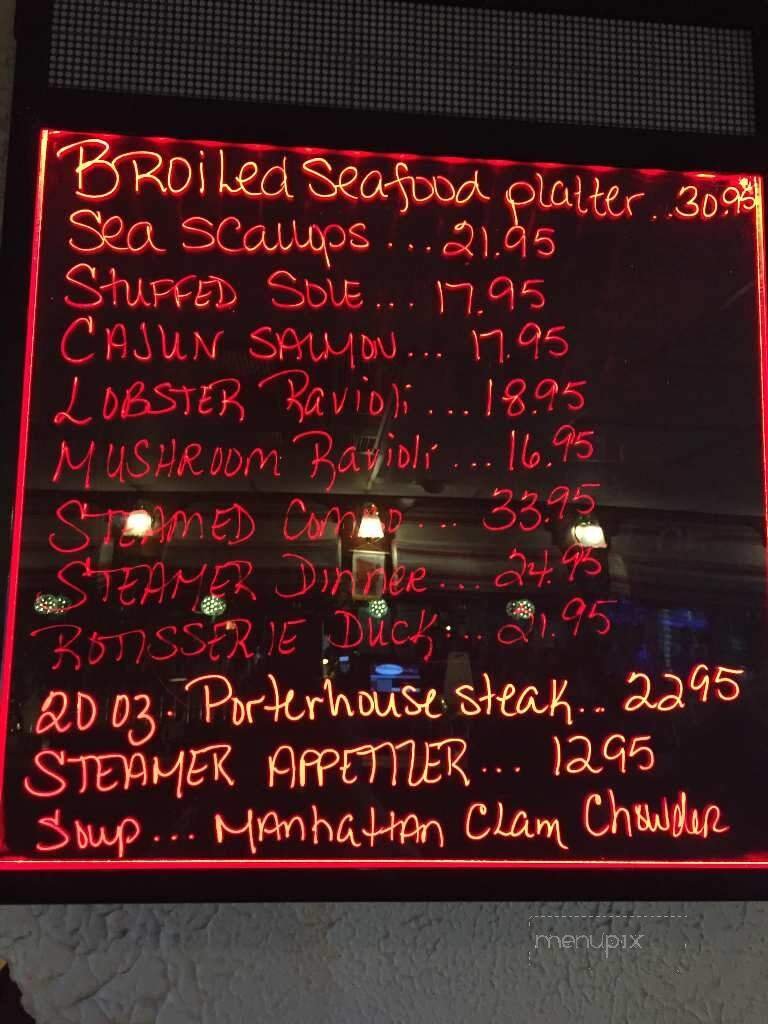 BROiLed Seafood platter..30.95
Sea Scallops...21.95
STUFFED SOLE...17.95
CAJUN SALMON...17.95
LOBSTER Ravioli...18.95
MUSHROOM Ravioli...16.95
STEAMED Combo...33.95
STEAMER Dinner...24.95
ROTISSERIE DUCK...21.95
20 oz. Porterhouse steak...2295
STEAMER APPETIZER...1295
Soup...MANhaHAN CLam ChowdeR
menupix